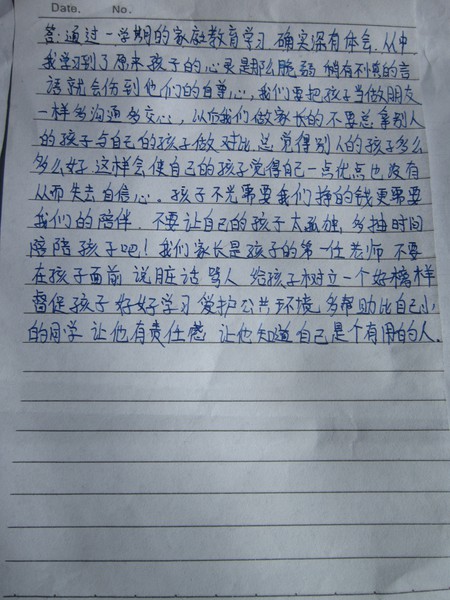 Date. No.
答:通过一学期的家庭教育学习 确实深有体会.从中
我学习到了原来孩子的心灵是那么脆弱 稍有不慎的言
语就会伤到他们的自尊心,我们要把孩子当做朋友
一样多沟通多交心,以后我们做家长的不要总拿别人
的孩子与自己的孩子做对比总觉得别人的孩子多么
多么好.这样会使自己的孩子觉得自己一点优点也没有
从而失去自信心。孩子不光需要我们挣的钱更需要
我们的陪伴.不要让自己的孩子太孤独,多抽时间
陪陪孩子吧!我们家长是孩子的第一任老师 不要
在孩子面前 说脏话 骂人 给孩子树立一个好榜样
督促孩子 好好学习 爱护公共环境 多帮助比自己小
的同学 让他有责任感 让他知道自己是个有用的人.